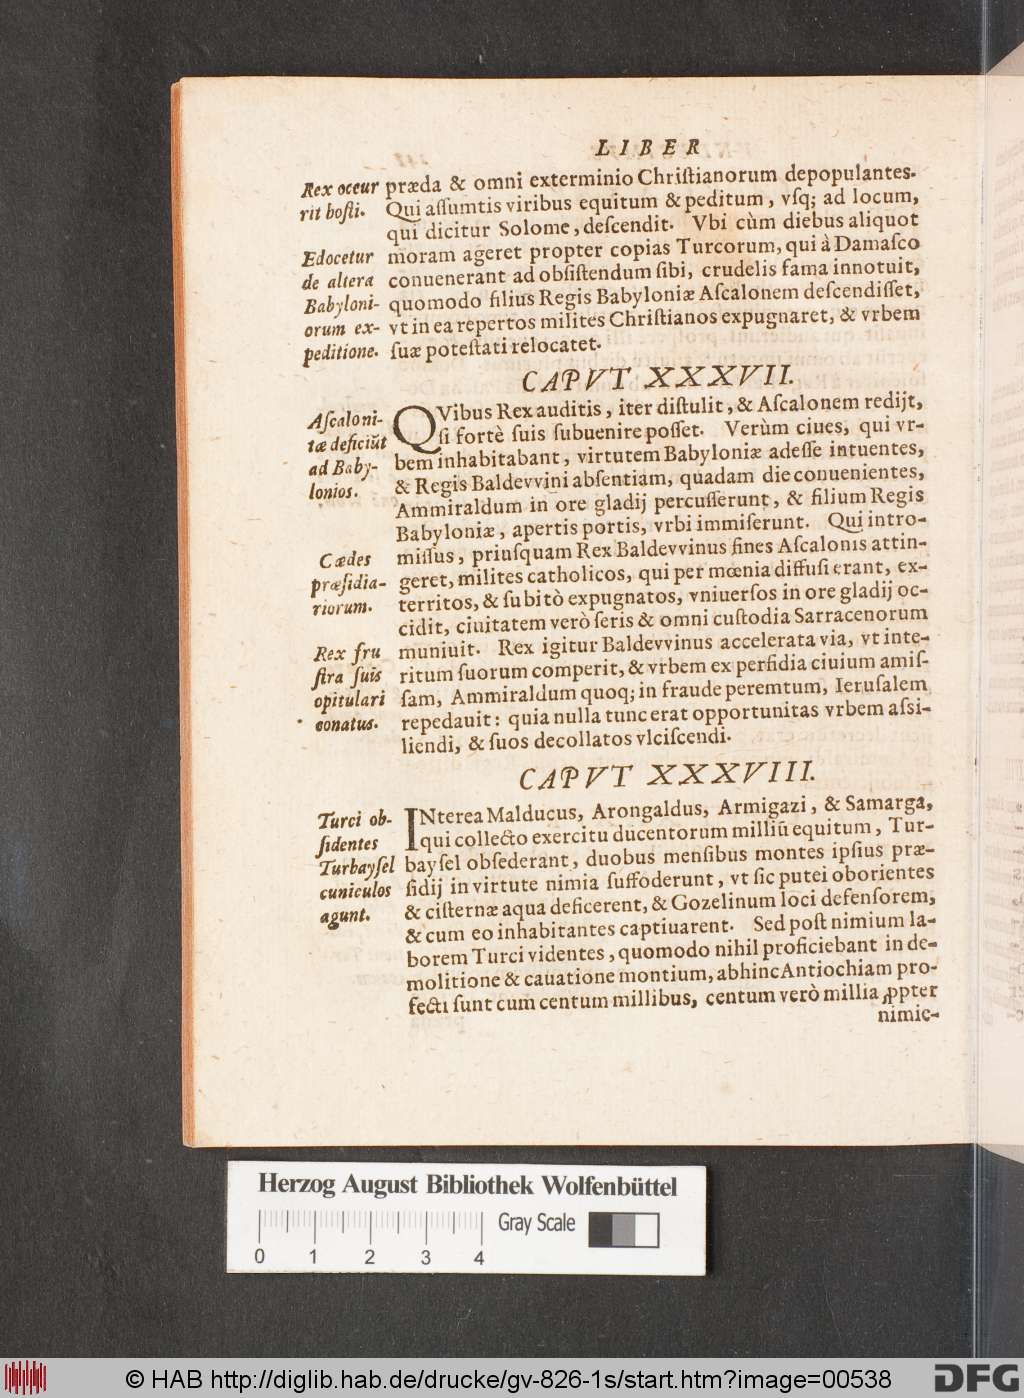 LIBER
Rex occur
rit hosti.
Edocetur
de altera
Babyloni-
orum ex-
peditione.
præda & omni exterminio Chriſtianorum depopulantes.
Qui aſſumtis viribus equitum & peditum, vſq; ad locum,
qui dicitur Solome, deſcendit. Vbi cùm diebus aliquot
moram ageret propter copias Turcorum, qui à Damaſco
conuenerant ad obſiſtendum ſibi, crudelis fama innotuit,
quomodo filius Regis Babyloniæ Aſcalonem deſcendiſſet,
vt in ea repertos milites Chriſtianos expugnaret, & vrbem
ſuæ poteſtati relocatet.
CAPVT XXXVII.
Aſcaloni-
tæ deficiūt
ad Baby-
lonios.
Cædes
præſidia-
riorum.
Rex fru
ſtra ſuis
opitulari
conatus.
QVibus Rex auditis, iter diſtulit, & Aſcalonem redijt,
ſi fortè ſuis ſubuenire poſſet. Verùm ciues, qui vr-
bem inhabitabant, virtutem Babyloniæ adeſſe intuentes,
& Regis Baldevvini abſentiam, quadam die conuenientes,
Ammiraldum in ore gladij percuſſerunt, & filium Regis
Babyloniæ, apertis portis, vrbi immiſerunt. Qui intro-
miſſus, priuſquam Rex Baldevvinus fines Aſcalonis attin-
geret, milites catholicos, qui per mœnia diffuſi erant, ex-
territos, & ſubitò expugnatos, vniuerſos in ore gladij oc-
cidit, ciuitatem verò ſeris & omni cuſtodia Sarracenorum
muniuit. Rex igitur Baldevvinus accelerata via, vt inte-
ritum ſuorum comperit, & vrbem ex perfidia ciuium amiſ-
ſam, Ammiraldum quoq; in fraude peremtum, Ieruſalem
repedauit: quia nulla tunc erat opportunitas vrbem aſsi-
liendi, & ſuos decollatos vlciſcendi.
CAPVT XXXVIII.
Turci ob-
ſidentes
Turbayſel
cuniculos
agunt.
INterea Malducus, Arongaldus, Armigazi, & Samarga,
qui collecto exercitu ducentorum milliū equitum, Tur-
bayſel obſederant, duobus menſibus montes ipſius præ-
ſidij in virtute nimia ſuffoderunt, vt ſic putei oborientes
& ciſternæ aqua deficerent, & Gozelinum loci defenſorem,
& cum eo inhabitantes captiuarent. Sed poſt nimium la-
borem Turci videntes, quomodo nihil proficiebant in de-
molitione & cauatione montium, abhinc Antiochiam pro-
fecti ſunt cum centum millibus, centum verò millia ꝓpter
nimie-
Herzog August Bibliothek Wolfenbüttel
Gray Scale
0 1 2 3 4
© HAB http://diglib.hab.de/drucke/gv-826-1s/start.htm?image=00538
DFG